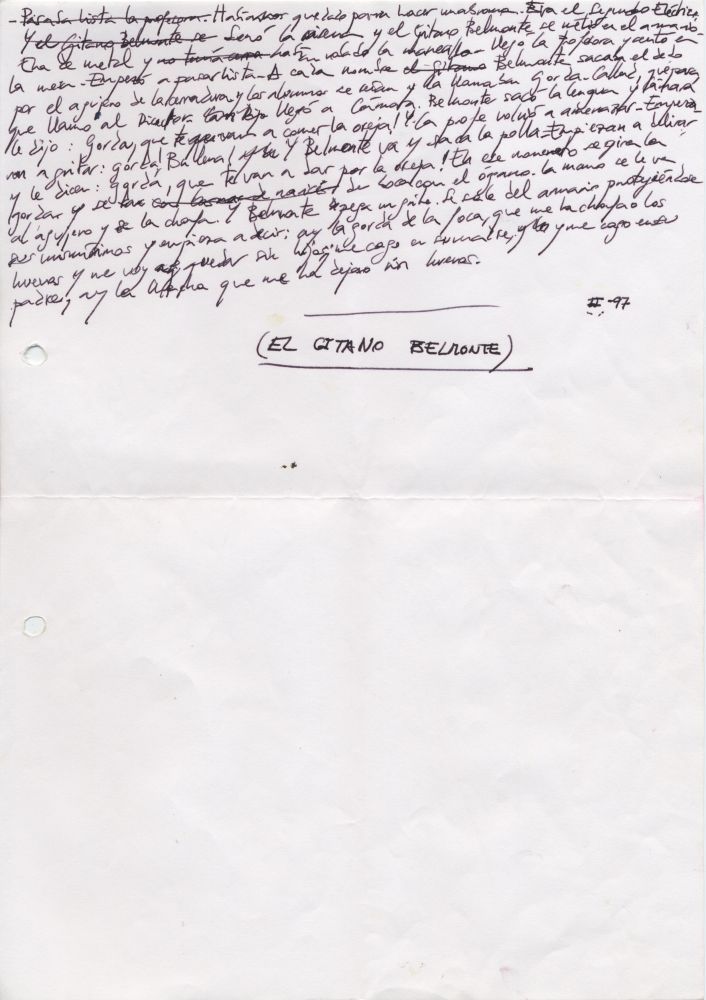 - Pasaba lista la profesora. Habíamos quedado para hacer una broma. Era el Segundo Eléctrica.
Y el Gitano Belmonte se Sonó la sirena y el Gitano Belmonte se metió en el armario.
Era de metal y no tenía habían robado la manecilla. Llegó la profesora y entó en
la mesa. Empezó a pasar lista. A cada nombre el gitano Belmonte sacaba el dedo
por el agujero de la cerradura y los alumnos se reían y la llamaban Gorda. Callad,
que llamo al Director. llegó a Cármora. Belmonte sacó la lengua y
le dijo: Gorda, que te van a comer la oreja! Y la profe volvió a amenazar. Empeza-
ron a gritar: gorda! Ballena! Y Belmonte va y saca la polla. Empiezan a
y le dicen: gorda, que te van a dar por la oreja! En ese momento se gira la
gorda y se de boca con el órgano. la mano se le va
al agujero y se la chafa. Y Belmonte pega un grito. Se sale del armario protegiéndose
sus y empieza a decir: ay la gorda de la foca, que me ha chafao los
huevos y me voy a quedar sin hijos, me cago en su madre, y me cago en su
padre, ay la que me ha dejao sin huevos.
II-97
(EL GITANO BELMONTE)